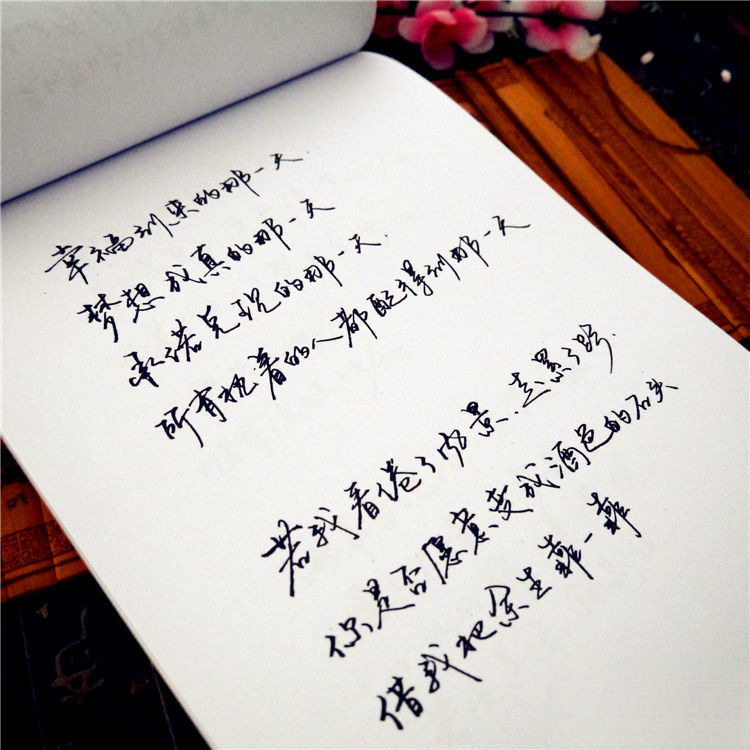 幸福到来的那一天
梦想成真的那一天
承诺兑现的那一天
所有执着的人都配得到那一天
若我看倦了风景.走累了路.
你是否愿意变成酒色的石头
借我把余生靠一靠